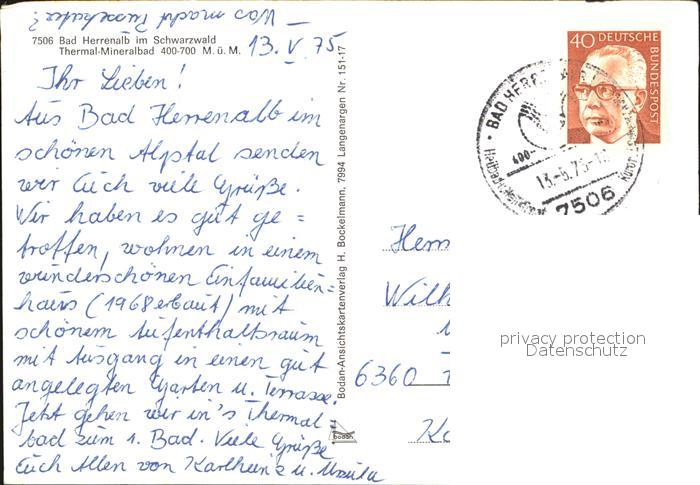 Was macht
7506 Bad Herrenalb im Schwarzwald
Thermal-Mineralbad 400-700 M. ü. M.
13. V. 75
Ihr Lieben!
Aus Bad Herrenalb im
schönen Alpstal senden
wir Euch viele Grüße.
Wir haben es gut ge=
troffen, wohnen in einem
wunderschönen Einfamilien=
haus (1968 erbaut) mit
schönem Aufenthaltsraum
mit Ausgang in einen gut
angelegten Garten u. Terrasse.
Jetzt gehen wir in's Thermal-
bad zum 1. Bad. Viele Grüße
Euch Allen von Karlheinz u. Ursula
Bodan-Ansichtskartenverlag H. Bockelmann, 7994 Langenargen Nr. 151-17
bodan
40 DEUTSCHE
BUNDESPOST
BAD HERR
400-
13.-5.75-
7506
Herrn
Wilh
6360
privacy protection
Datenschutz